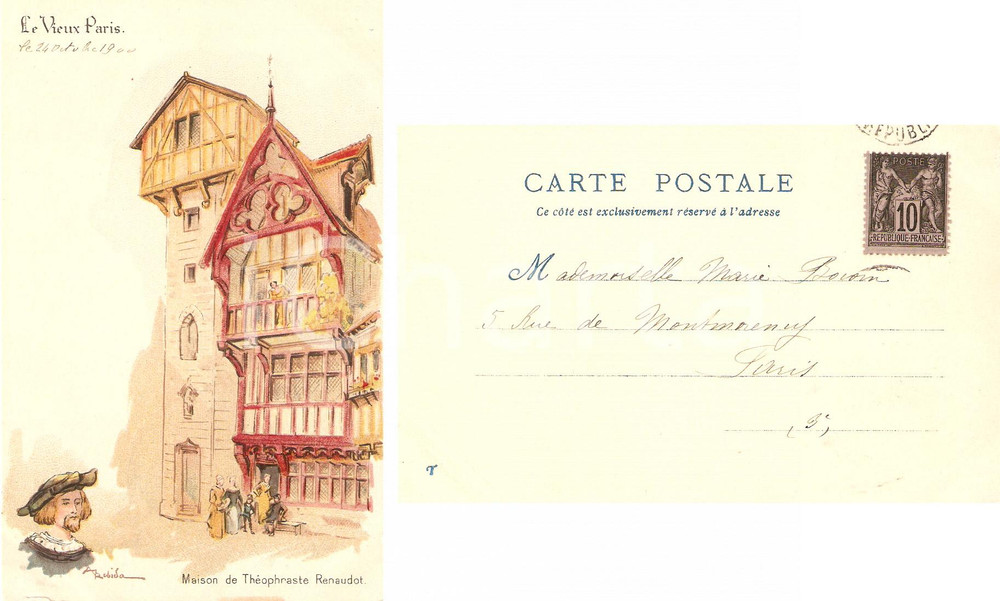 Le Vieux Paris.
le 24 octobre 1900
A Robida
Maison de Théophraste Renaudot.
RÉPUBL
CARTE POSTALE
Ce côté est exclusivement réservé à l'adresse
POSTE
10
REPUBLIQUE FRANÇAISE
Mademoiselle Marie
5 Rue de Montmorency
Paris
(3e)